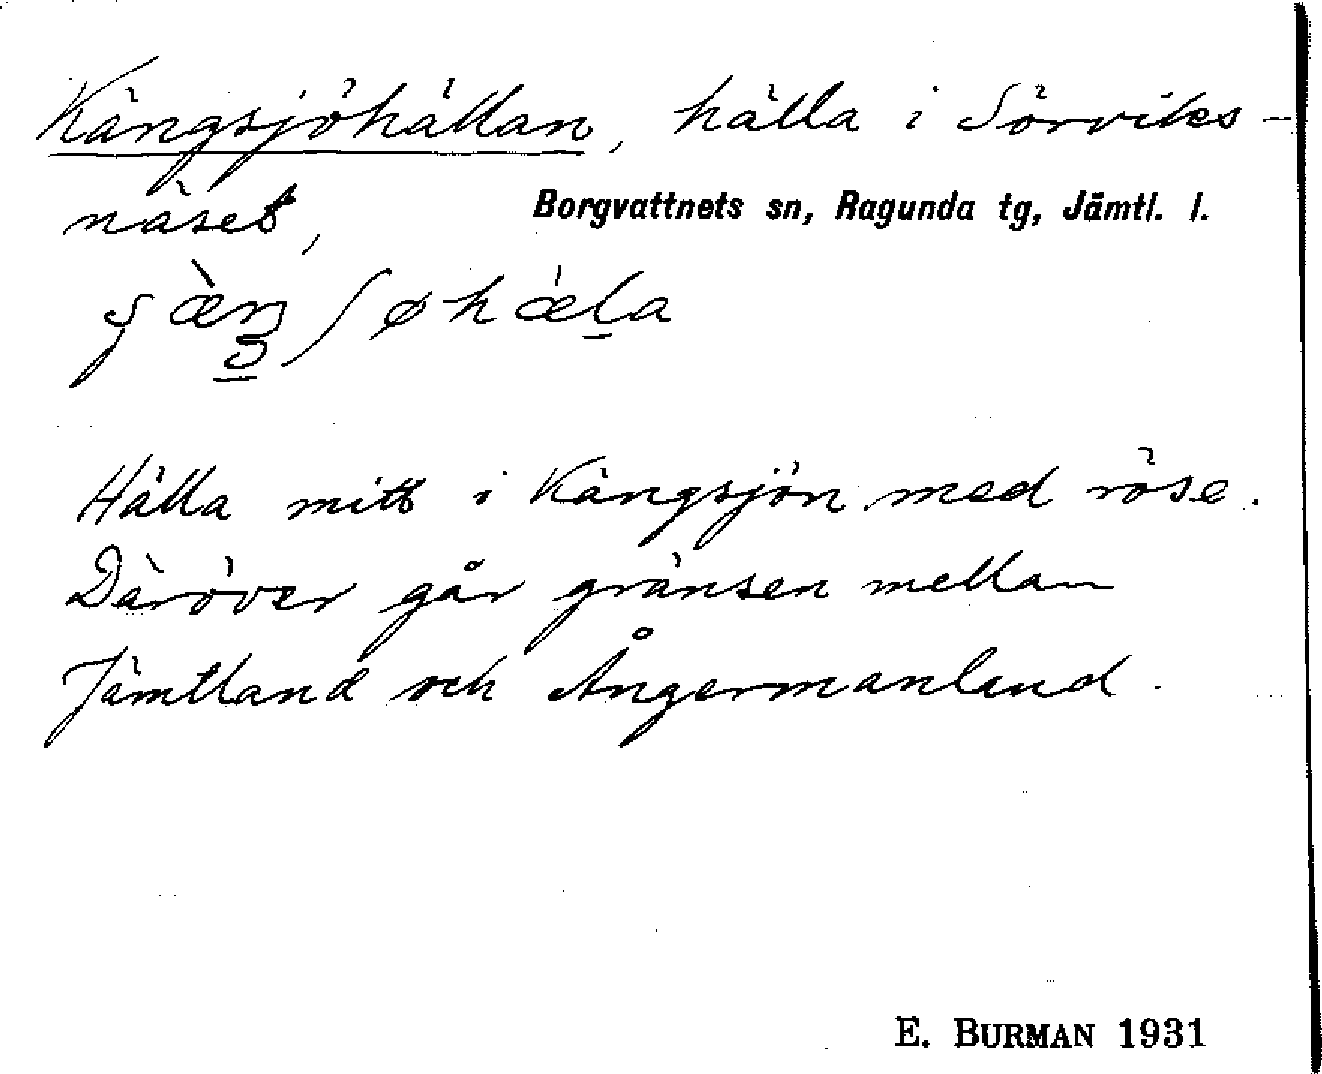 Kängsjöhällan, hälla i Sörviks-
näset,
Borgvattnets sn, Ragunda tg, Jämtl. l.
Hälla mitt i Kängsjön med röse.
Däröver går gränsen mellan
Jämtland och Ångermanland.
E. BURMAN 1931